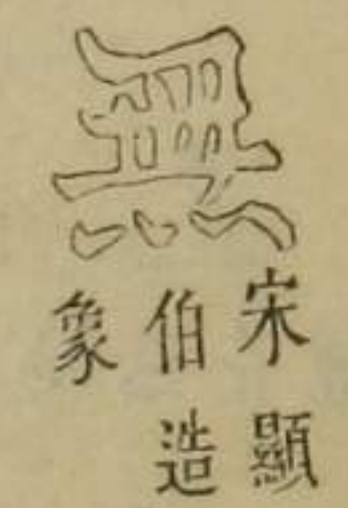 無
宋顯
伯造
象